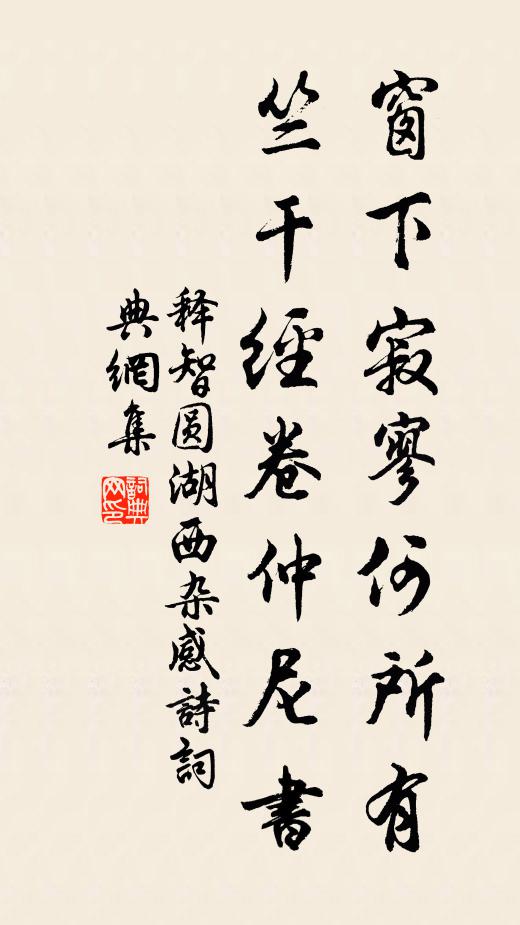 窗下寂寥何所有
竺干經卷仲尼書
释智圓湖西杂感詩詞
典網集
詞典網印